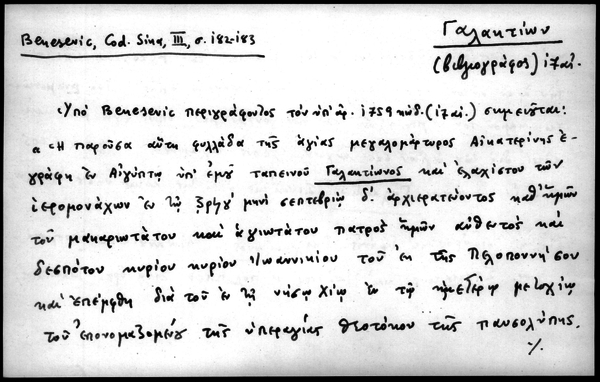 Γαλακτίων
Benesevic, Cod. Sina, III, σ. 182-183
(βιβλιογράφος) 17 αἰ.
Ὑπὸ Benesevic περιγράφοντος τὸν ὑπ' ἀρ. 1759 κώδ. (17 αἰ.) σημειοῦται:
«Ἡ παροῦσα αὕτη φυλλάδα τῆς ἁγίας μεγαλομάρτυρος Αἰκατερίνης ἐ-
γράφη ἐν Αἰγύπτῳ ὑπ' ἐμοῦ ταπεινοῦ Γαλακτίωνος καὶ ἐλαχίστου τῶν
ἱερομονάχων ἐν ἔτῃ μηνὶ σεπτεβρίῳ δ'. ἀρχιερατεύοντος καθ' ἡμῶν
τοῦ μακαριωτάτου καὶ ἁγιωτάτου πατρὸς ἡμῶν αὐθεντὸς καὶ
δεσπότου κυρίου κυρίου Ἰωαννικίου τοῦ ἐκ τῆς Πελοποννήσου
καὶ ἐπέμφθη διὰ τοῦ ἐν τῇ νήσῳ Χίῳ ἐν τῷ ἡμετέρῳ μετοχίῳ
τοῦ ἐπονομαζομένου τῆς ὑπεραγίας Θεοτόκου τῆς παυσολύπης.